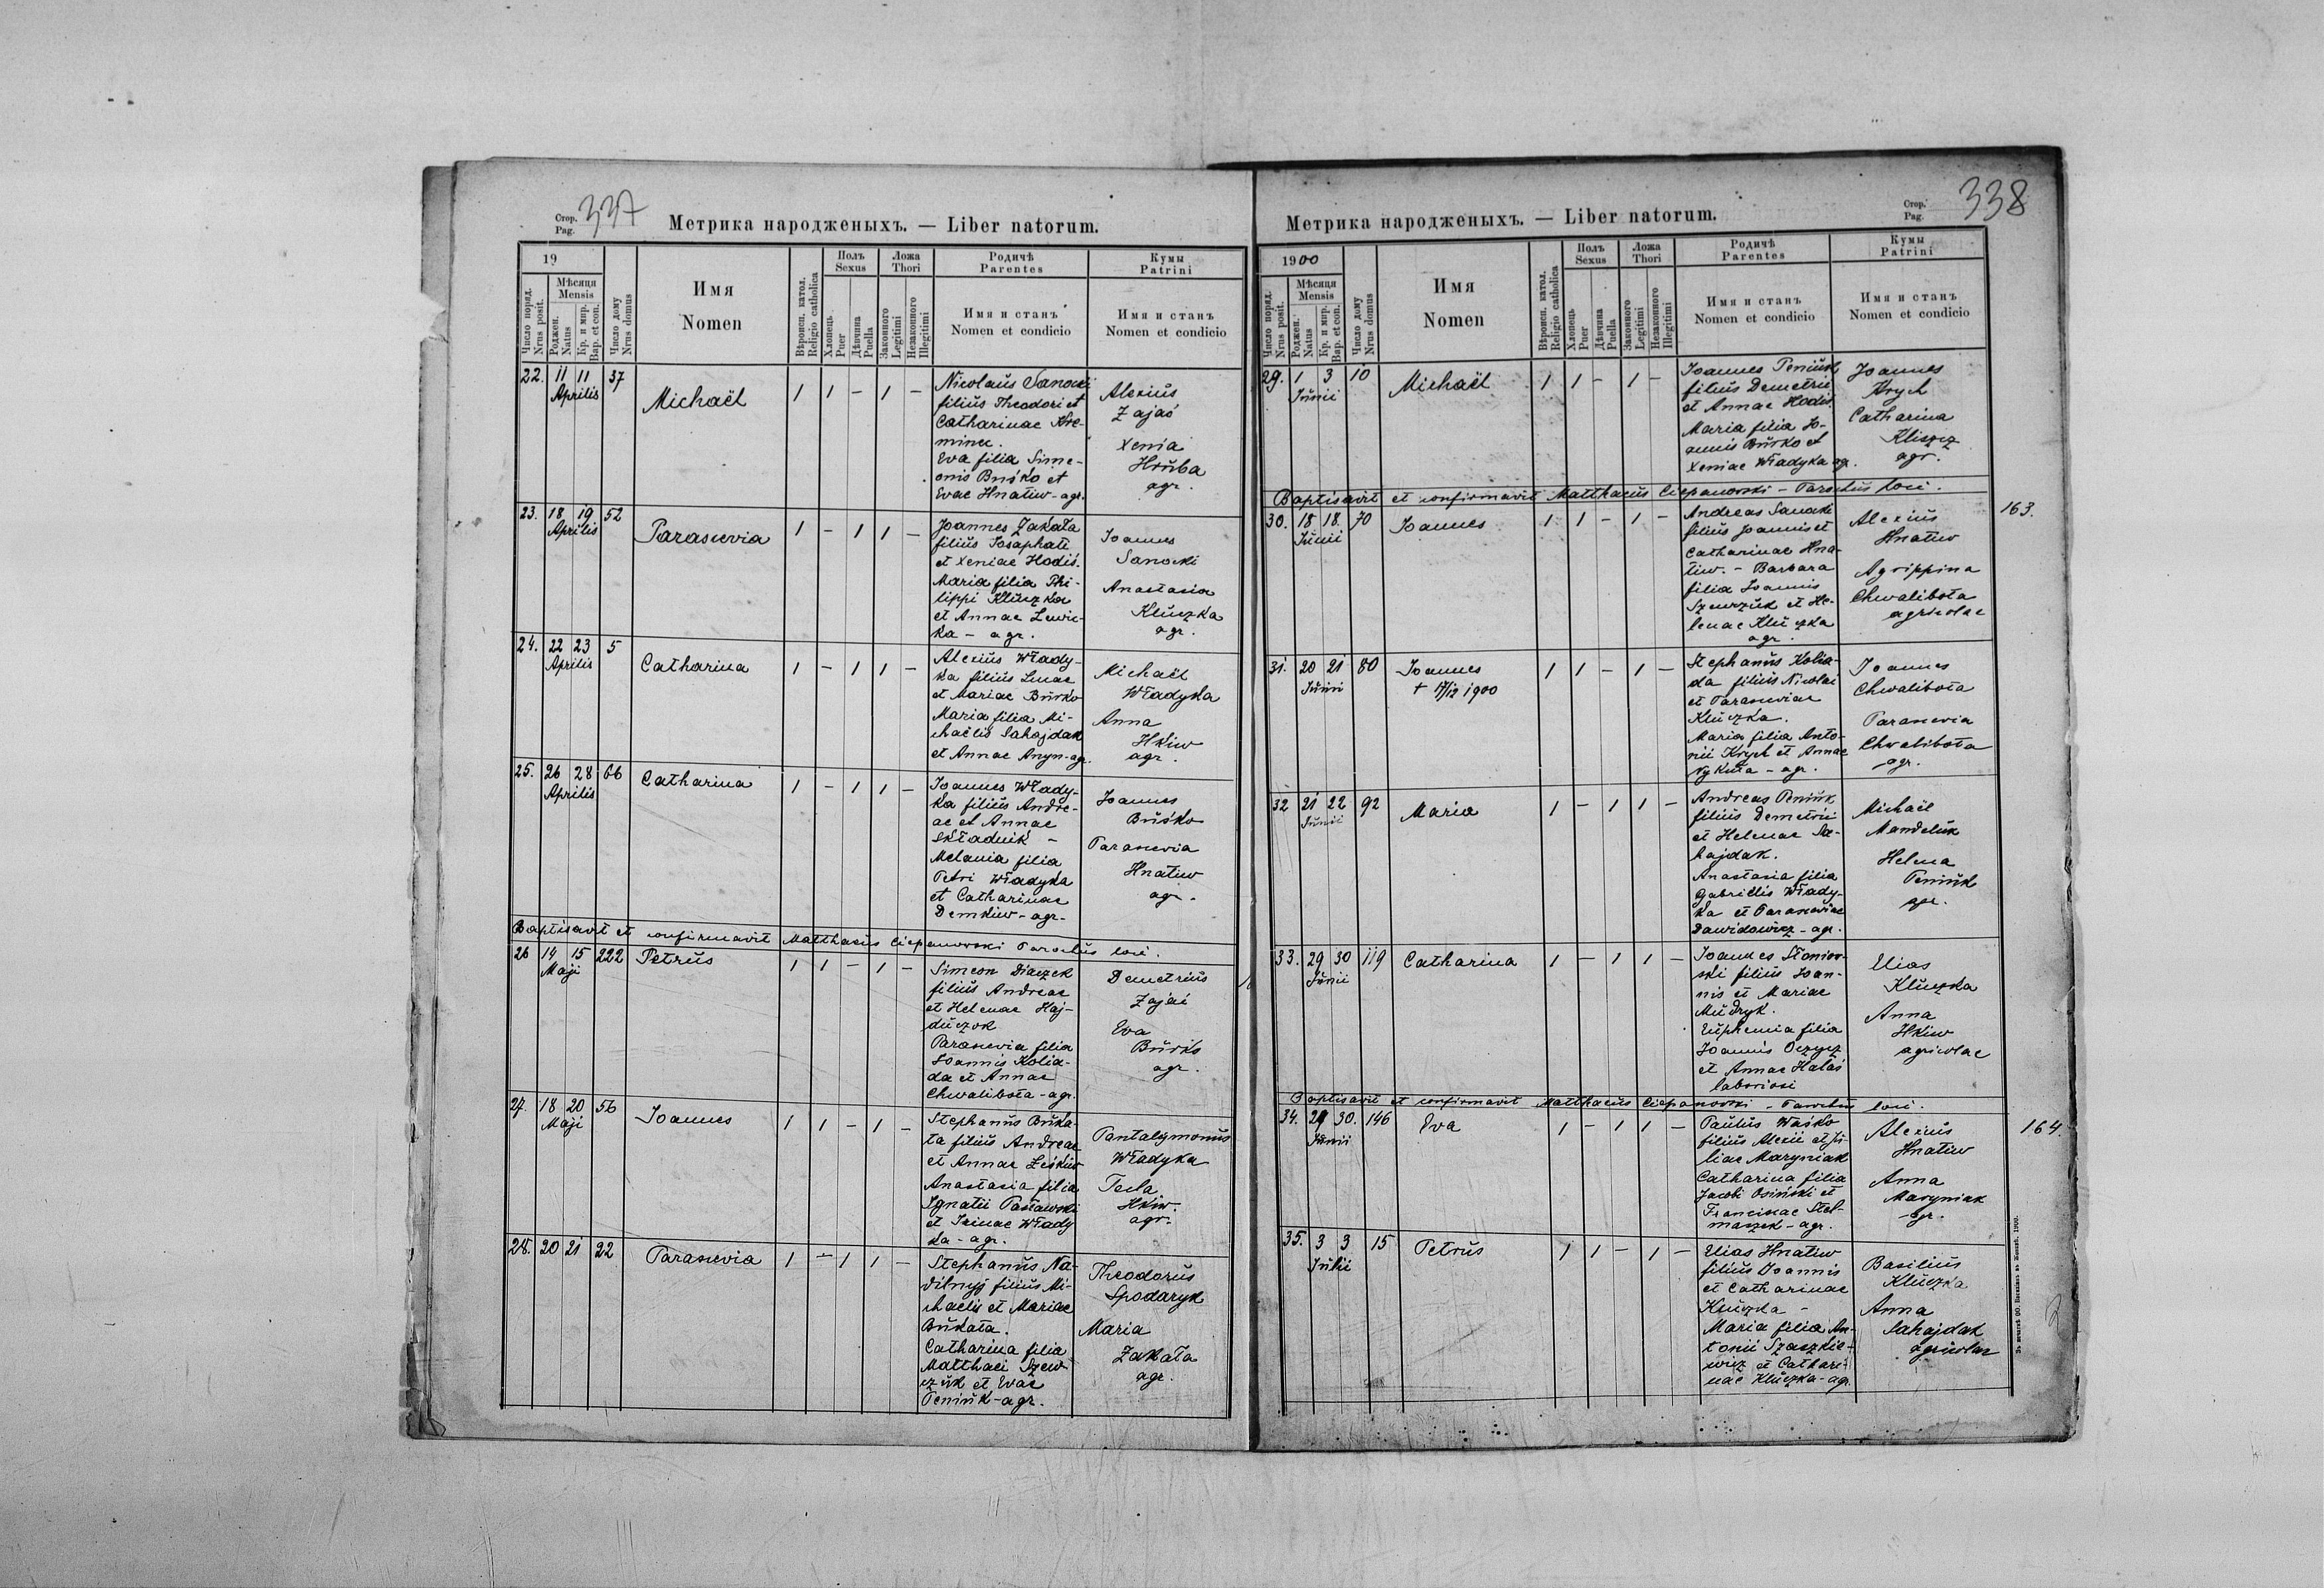 Стор.
Pag.
337
Метрика народженыхъ. — Liber natorum.
19
Число поряд.
Nrus posit.
Мѣсяця
Mensis
Роджен.
Natus
Кр. и мир.
Bap. et con.
Число дому
Nrus domus
Имя
Nomen
Вѣроисп. катол.
Religio catholica
Полъ
Sexus
Хлопець
Puer
Дѣвчина
Puella
Ложа
Thori
Законного
Legitimi
Незаконного
Illegitimi
Родичѣ
Parentes
Имя и станъ
Nomen et condicio
Кумы
Patrini
Имя и станъ
Nomen et condicio
22. 11 11 37
Aprilis
Michaël
1 1 – 1 –
Nicolaus Sanocki
filius Theodori et
Catharinae Kre-
minec.
Eva filia Sime-
onis Buśko et
Evae Hnatiw - agr.
Alexius
Zajać
Xenia
Hruba
agr.
23. 18 19 52
Aprilis
Parascevia
1 – 1 1 –
Joannes Zakała
filius Josaphati
et Xeniae Hodiś.
Maria filia Phi-
lippi Kluczka
et Annae Lewic-
ka – agr.
Joannes
Sanocki
Anastasia
Kluczka
agr.
24. 22 23 5
Aprilis
Catharina
1 – 1 1 –
Alexius Włady-
ka filius Lucae
et Mariae Burko
Maria filia Mi-
chaëlis Sahajdak
et Annae Anyn - agr.
Michaël
Władyka
Anna
Hkiw
agr.
25. 26 28 66
Aprilis
Catharina
1 – 1 1 –
Joannes Włady-
ka filius Andre-
ae et Annae
Składnik –
Melania filia
Petri Władyka
et Catharinae
Demkiw – agr.
Joannes
Buśko
Parascevia
Hnatiw
agr.
Baptisavit et confirmavit Matthaeus Ciepanowski Parochus loci.
26 14 15 222
Maji
Petrus
1 1 – 1 –
Simeon Diaczek
filius Andreae
et Helenae Haj-
duczok
Parascevia filia
Joannis Kolia-
da et Annae
Chwalibota - agr.
Demetrius
Zajać
Eva
Burko
agr.
27. 18 20 56
Maji
Joannes
1 1 – 1 –
Stephanus Buka-
ta filius Andreae
et Annae Leśkiw
Anastasia filia
Ignatii Pasławski
et Irinae Włady
ka – agr.
Pantalymonus
Władyka
Tecla
Hkiw.
agr.
28. 20 21 22
Parascevia
1 – 1 1 –
Stephanus Na-
dilnyj filius Mi-
chaelis et Mariae
Bukata.
Catharina filia
Matthaei Szew-
czuk et Evae
Peniuk - agr.
Theodorus
Spodaryk
Maria
Zakała
agr.
Стор.
Pag.
338
Метрика народженыхъ. — Liber natorum.
1900
Число поряд.
Nrus posit.
Мѣсяця
Mensis
Роджен.
Natus
Кр. и мир.
Bap. et con.
Число дому
Nrus domus
Имя
Nomen
Вѣроисп. катол.
Religio catholica
Полъ
Sexus
Хлопець
Puer
Дѣвчина
Puella
Ложа
Thori
Законного
Legitimi
Незаконного
Illegitimi
Родичѣ
Parentes
Имя и станъ
Nomen et condicio
Кумы
Patrini
Имя и станъ
Nomen et condicio
29. 1 3 10
Junii
Michaël
1 1 – 1 –
Joannes Peniuk
filius Demetrii
et Annae Hodiś.
Maria filia Jo-
annis Burko et
Xeniae Władyka agr.
Joannes
Krych
Catharina
Kliszcz
agr.
Baptisavit et confirmavit Matthaeus Ciepanowski – Parochus loci.
163.
30. 18 18. 70
Junii
Joannes
1 1 – 1 –
Andreas Sanocki
filius Joannis et
Catharinae Hna-
tiw. – Barbara
filia Joannis
Szewczuk et He-
lenae Kluczka
agr.
Alexius
Hnatiw
Agrippina
Chwalibota
agricolae
31. 20 21 80
Junii
Joannes
+ 17/12 1900
1 1 – 1 –
Stephanus Kolia-
da filius Nicolai
et Parasceviae
Kluczka.
Maria filia Anto-
nii Krych et Annae
Nykuła – agr.
Joannes
Chwalibota
Parascevia
Chwalibota
agr.
32 21 22 92
Junii
Maria
1 – 1 1 –
Andreas Peniuk
filius Demetrii
et Helenae Sa-
hajdak.
Anastasia filia
Gabrielis Włady-
ka et Parasceviae
Dawidowicz – agr.
Michaël
Mandeluk
Helena
Peniuk
agr.
33. 29 30 119
Junii
Catharina
1 – 1 1 –
Joannes Słoniow-
ski filius Joan-
nis et Mariae
Mudryk.
Euphemia filia
Joannis Oczycz
et Annae Hałas
laboriosi
Elias
Kluczka
Anna
Hkiw
agricolae
Baptisavit et confirmavit Matthaeus Ciepanowski – Parochus loci.
164.
34. 29 30. 146
Junii
Eva
1 – 1 1 –
Paulus Waśko
filius Alexii et Ju-
liae Maryniak
Catharina filia
Jacobi Osiński et
Franciscae Stel-
maszek – agr.
Alexius
Hnatiw
Anna
Maryniak
agr.
35. 3 3 15
Julii
Petrus
1 1 – 1 –
Elias Hnatiw
filius Joannis
et Catharinae
Kluczka –
Maria filia An-
tonii Szaszkie-
wicz et Cathari-
nae Kluczka - agr.
Basilius
Kluczka
Anna
Sahajdak
agricolae